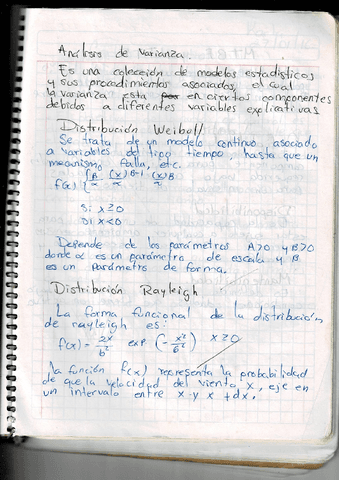 Análisis de Varianza.
Es una colección de modelos estadísticos
y sus procedimientos asociados, el cual
la varianza esta en ciertos componentes
debidos a diferentes variables explicativas
Distribución Weibull
Se trata de un modelo continuo, asociado
a variables de tipo tiempo, hasta que un
mecanismo, falla, etc.
f(x)
si x≥0
si x<0
Depende de los parámetros A>0 y B>0
donde α es un parámetro de escala y B
es un parámetro de forma.
Distribución Rayleigh
La forma funcional de la distribución
de rayleigh es:
f(x) = 2x/b² exp (-x²/b²) x≥0
la función f(x) representa la probabilidad
de que la velocidad del viento x, eje en
un intervalo entre x y x + dx.